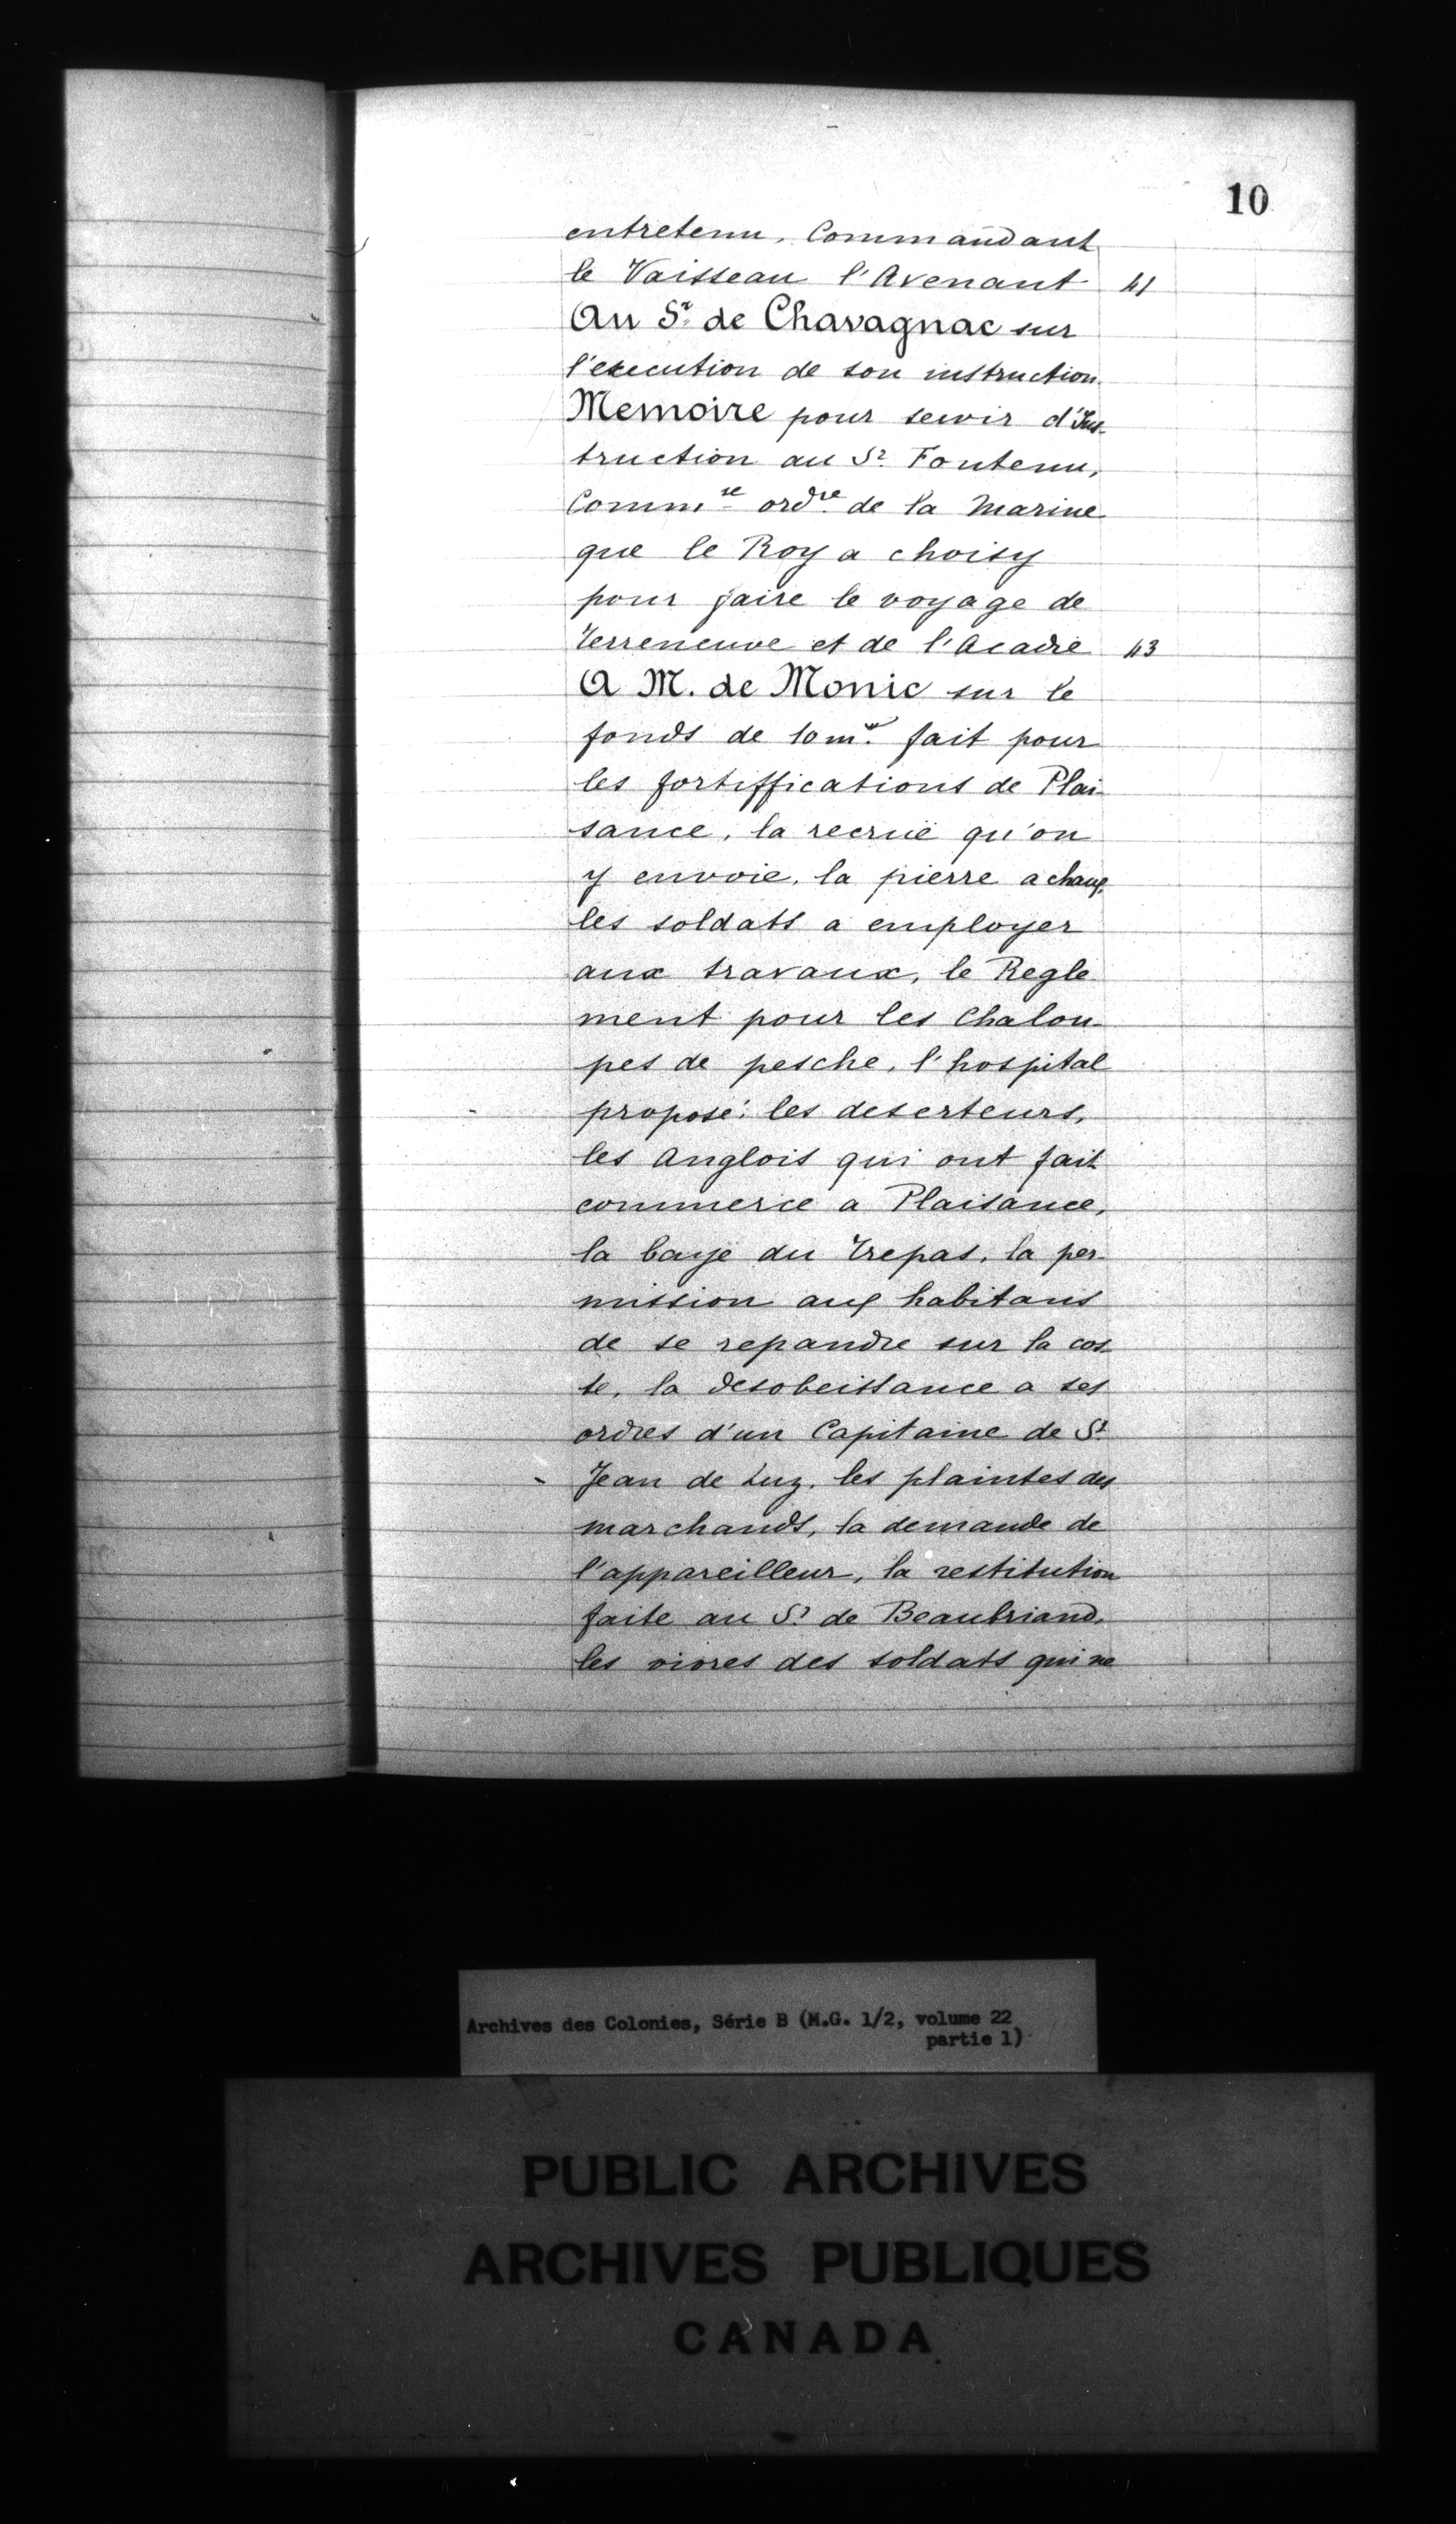 10
entretenu, Commandant
le Vaisseau l'Avenant 41
Au Sr. de Chavagnac sur
l'execution de son instruction.
Memoire pour servir d'Ins-
truction au Sr. Fontenu,
Commre ordre de la Marine
que le Roy a choisy
pour faire le voyage de
Terreneuve et de l'Acadie 43
A M. de Monic sur le
fonds de 10m# fait pour
les fortiffications de Plai-
sance, la recruë qu'on
y envoie, la pierre a chaux,
les soldats a employer
aux travaux, le Regle-
ment pour les Chalou-
pes de pesche, l'hospital
proposé, les deserteurs,
les Anglois qui ont fait
commerce a Plaisance,
la baye du Trepas, la per-
mission aux habitans
de se repandre sur la cos-
te, la desobeissance a ses
ordres d'un Capitaine de St
Jean de Luz, les plaintes des
marchands, la demande de
l'appareilleur, la restitution
faite au Sr. de Beaubriand,
les vivres des soldats qui ne
Archives des Colonies, Série B (M.G. 1/2, volume 22
partie 1)
PUBLIC ARCHIVES
ARCHIVES PUBLIQUES
CANADA